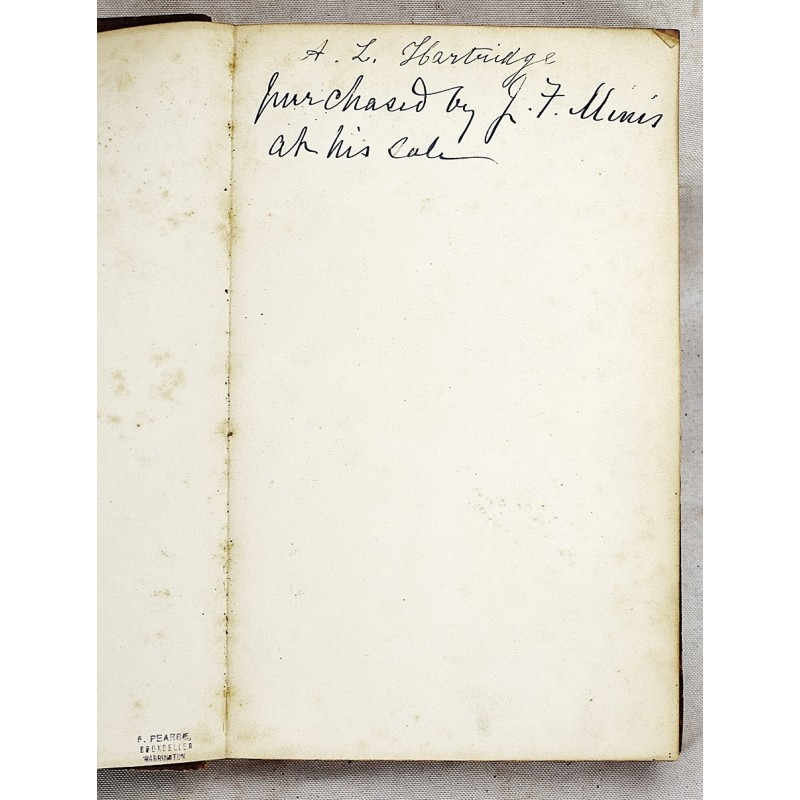 A. L. Hartridge
purchased by J. F. Minis
at his sale
F. PEARSE,
BOOKSELLER
WARRINGTON